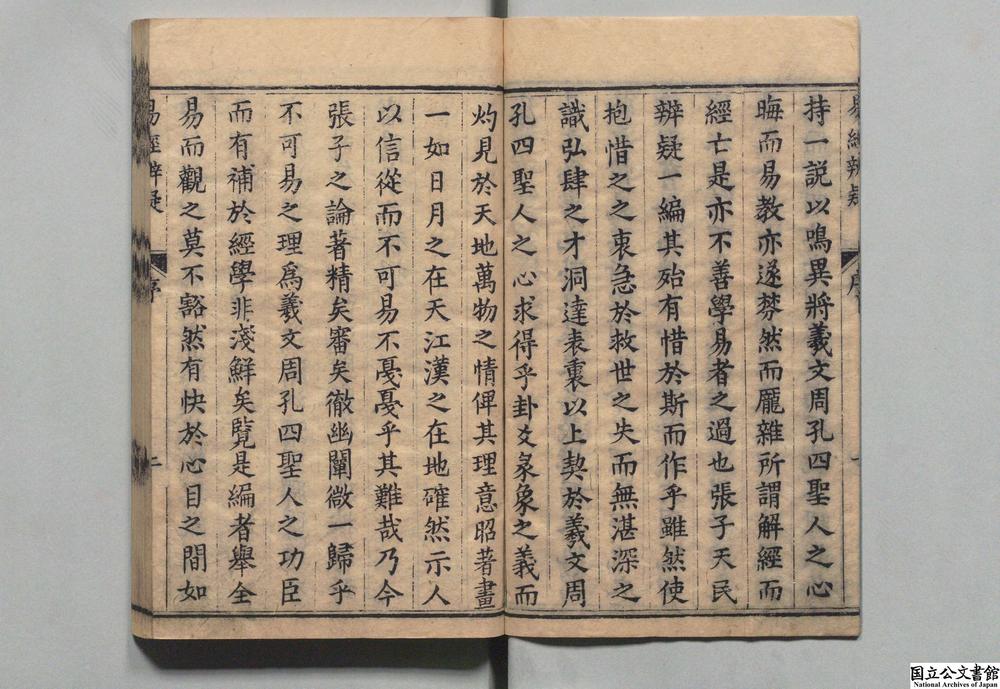 易經辨疑
序
一
持一說以鳴異將羲文周孔四聖人之心
晦而易教亦遂棼然而厖雜所謂解經而
經亡是亦不善學易者之過也張子天民
辨疑一編其殆有惜於斯而作乎雖然使
抱惜之之衷急於救世之失而無湛深之
識弘肆之才洞達表裏以上契於羲文周
孔四聖人之心求得乎卦爻彖象之義而
灼見於天地萬物之情俾其理意昭著畫
一如日月之在天江漢之在地確然示人
以信從而不可易不戞戞乎其難哉乃今
張子之論著精矣審矣徹幽闡微一歸乎
不可易之理爲羲文周孔四聖人之功臣
而有補於經學非淺鮮矣覽是編者舉全
易而觀之莫不豁然有快於心目之間如
易經辨疑
序
二
国立公文書館
National Archives of Japan